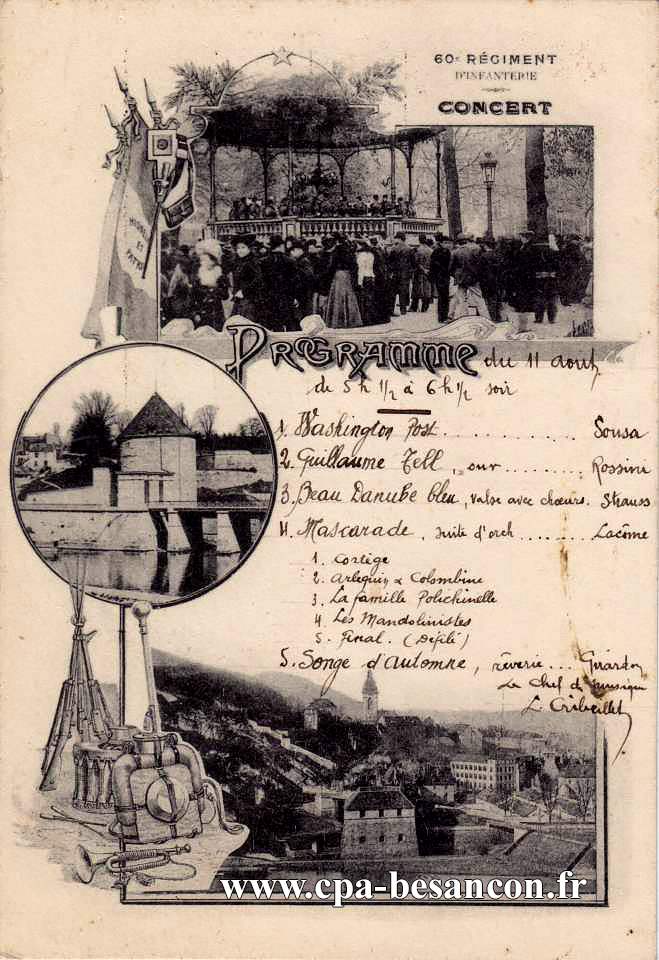 60e RÉGIMENT
D'INFANTERIE
CONCERT
HONNEUR
ET
PATRIE
PROGRAMME du 11 août
de 5h 1/2 à 6h 1/2 soir
1. Washington Post ............ Sousa
2. Guillaume Tell, ouv ......... Rossini
3. Beau Danube bleu, valse avec chœurs. Strauss
4. Mascarade, suite d'orch ........ Lacôme
1. Cortège
2. Arlequin & Colombine
3. La famille Polichinelle
4. Les Mandolinistes
5. Final. (Défilé)
5. Songe d'automne, rêverie ... Girardon
Le Chef de musique
L.
www.cpa-besancon.fr